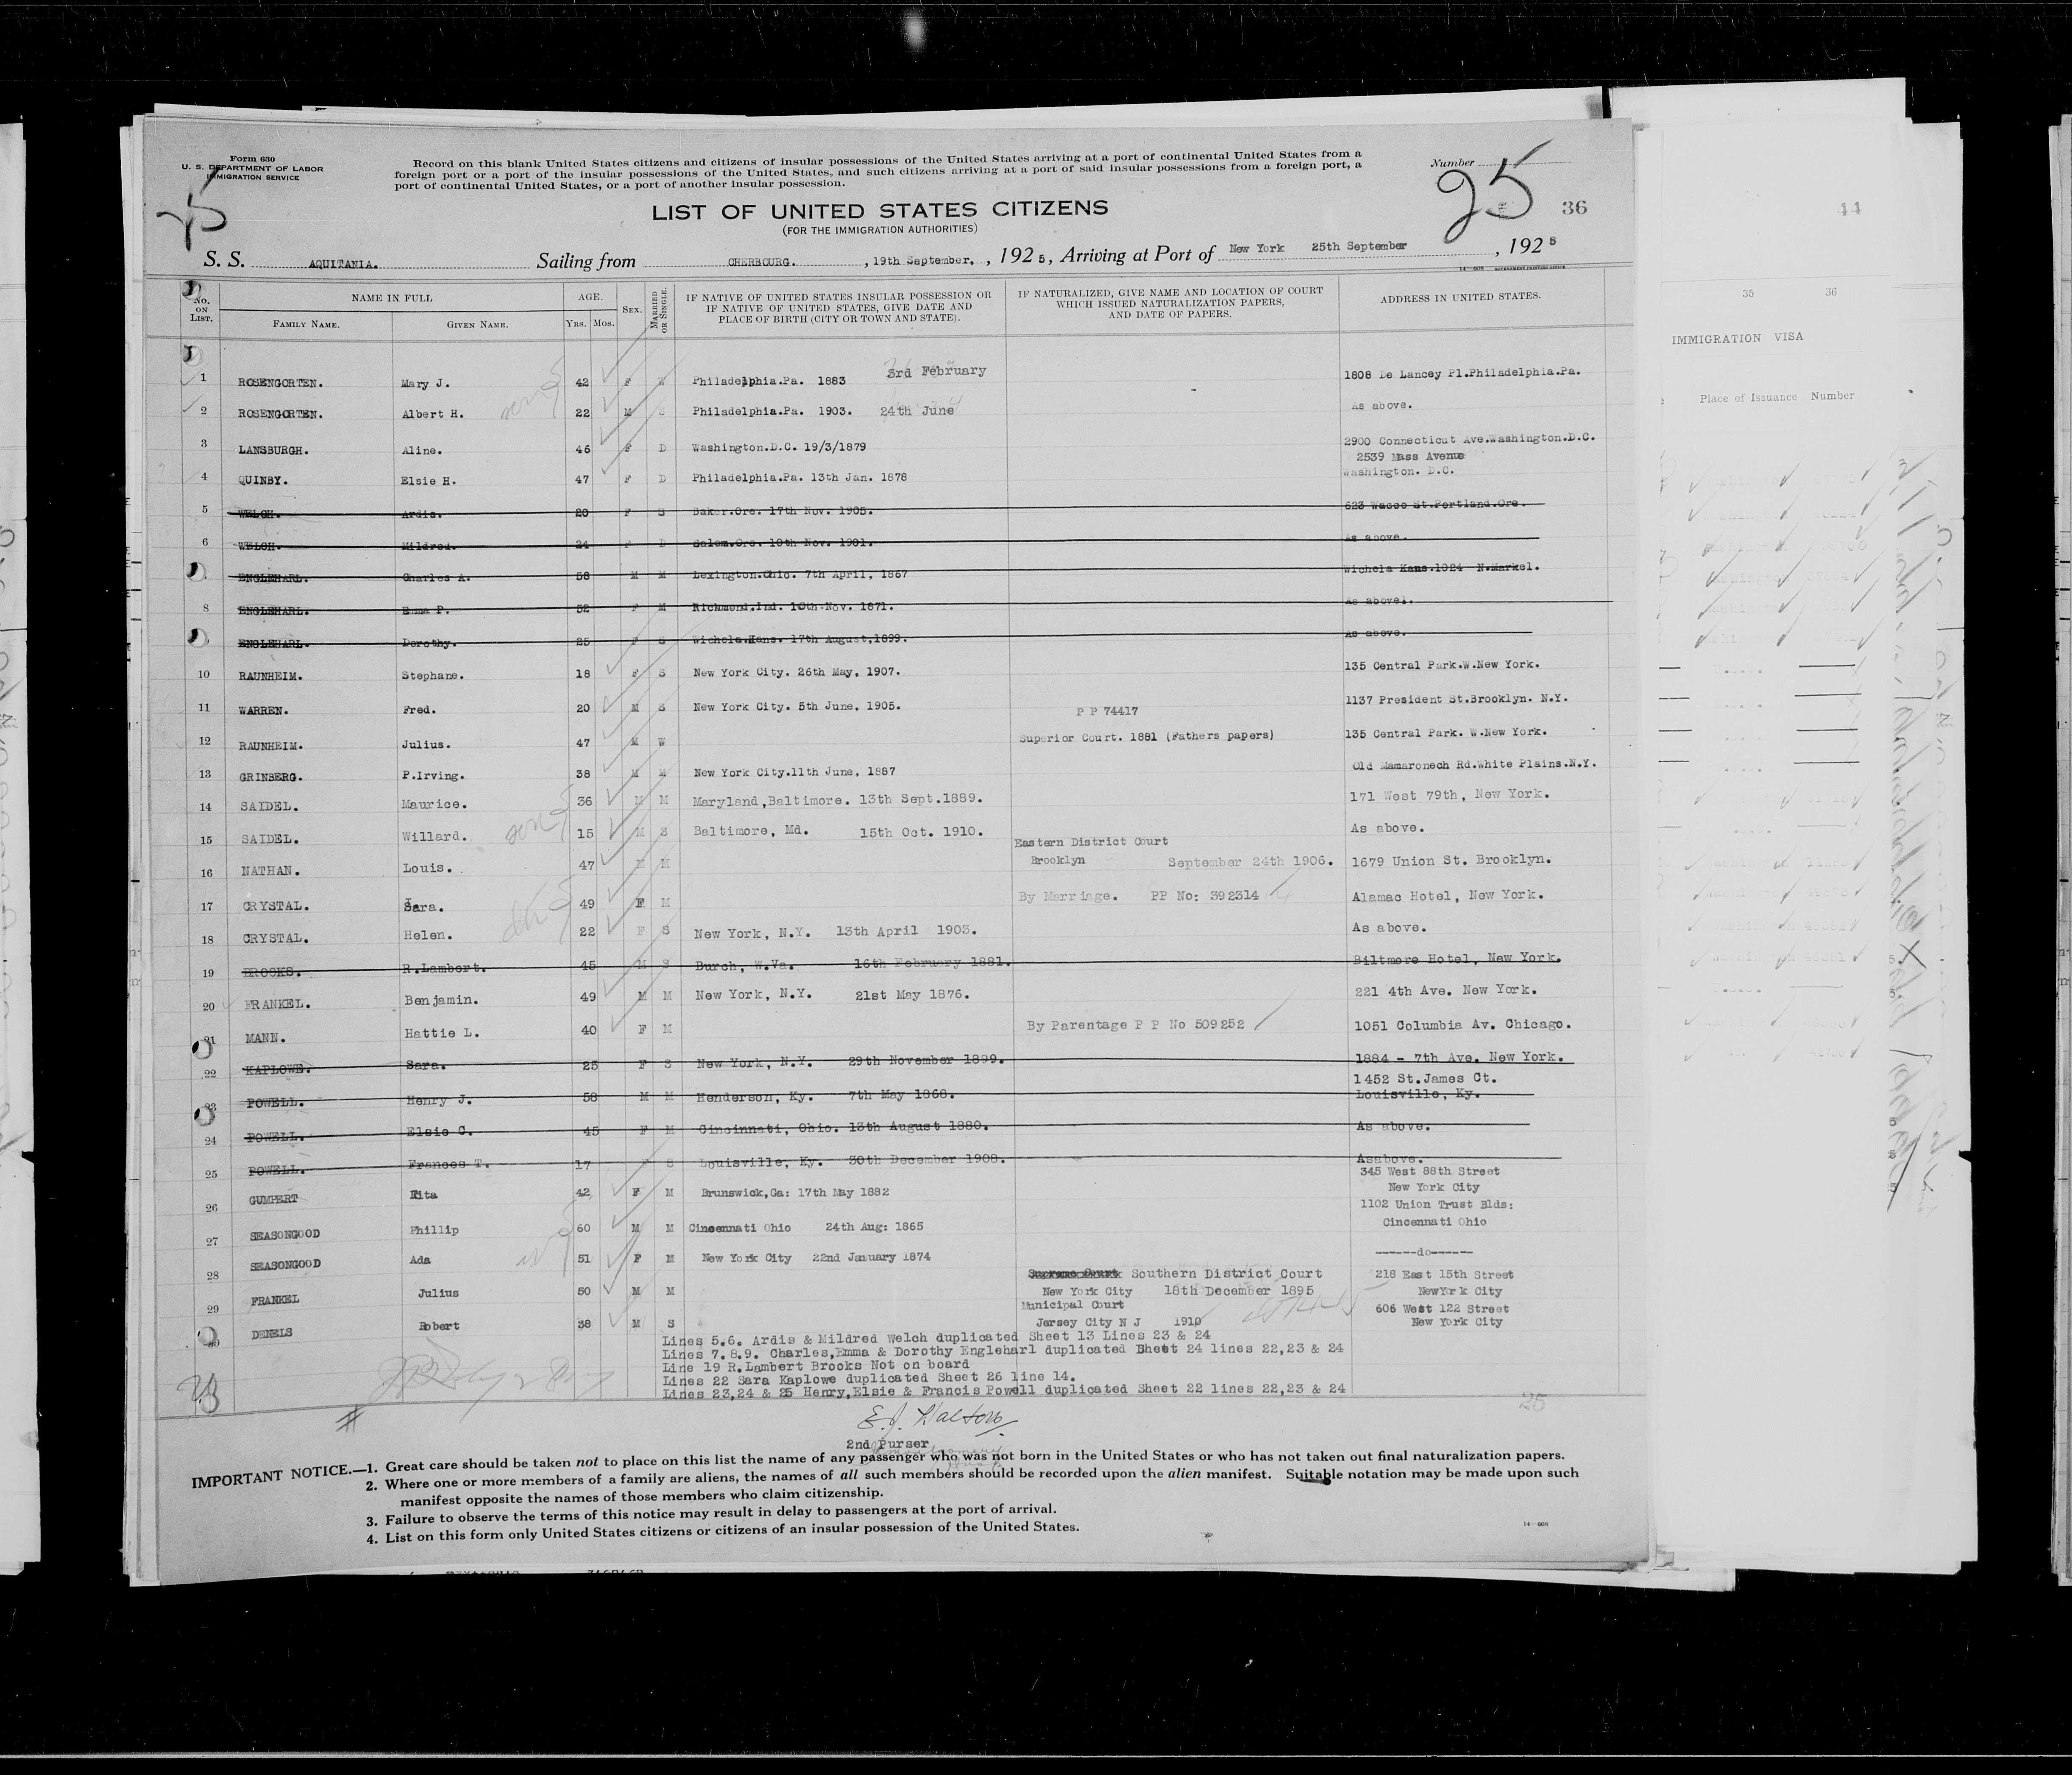 Form 630
U. S. DEPARTMENT OF LABOR
IMMIGRATION SERVICE
Record on this blank United States citizens and citizens of insular possessions of the United States arriving at a port of continental United States from a
foreign port or a port of the insular possessions of the United States, and such citizens arriving at a port of said insular possessions from a foreign port, a
port of continental United States, or a port of another insular possession.
Number
25
25 36
LIST OF UNITED STATES CITIZENS
(FOR THE IMMIGRATION AUTHORITIES)
S. S. AQUITANIA. Sailing from CHERBOURG. , 19th September, , 1925, Arriving at Port of New York 25th September , 1925
No. ON LIST. NAME IN FULL AGE. SEX. MARRIED OR SINGLE. IF NATIVE OF UNITED STATES INSULAR POSSESSION OR IF NATIVE OF UNITED STATES, GIVE DATE AND PLACE OF BIRTH (CITY OR TOWN AND STATE). IF NATURALIZED, GIVE NAME AND LOCATION OF COURT WHICH ISSUED NATURALIZATION PAPERS, AND DATE OF PAPERS. ADDRESS IN UNITED STATES.
FAMILY NAME. GIVEN NAME. YRS. MOS.
1 ROSENGORTEN. Mary J. 42 F Philadelphia.Pa. 1883 3rd February 1808 De Lancey Pl.Philadelphia.Pa.
2 ROSENGORTEN. Albert H. 22 M S Philadelphia.Pa. 1903. 24th June As above.
3 LANSBURGH. Aline. 46 F D Washington.D.C. 19/3/1879 2900 Connecticut Ave.Washington.D.C.
4 QUINBY. Elsie H. 47 F D Philadelphia.Pa. 13th Jan. 1878 2539 Mass Avenue
Washington. D.C.
5 WELCH. Ardis. 20 F S Baker.Ore. 17th Nov. 1905. 623 Wasco St.Portland.Ore.
6 WELCH. Mildred. 24 F D Salem.Ore. 10th Nov. 1901. As above.
ENGLEHARL. Charles A. 58 M M Lexington.Ohio. 7th April, 1867 Wichola Kans.1024 N.Markel.
8 ENGLEHARL. Emma P. 52 F M Richmond.Ind. 10th Nov. 1871. As above.
ENGLEHARL. Dorothy. 25 F S Wichola.Kans. 17th August,1899. As above.
10 RAUNHEIM. Stephane. 18 F S New York City. 26th May, 1907. 135 Central Park.W.New York.
11 WARREN. Fred. 20 M S New York City. 5th June, 1905. P P 74417 1137 President St.Brooklyn. N.Y.
12 RAUNHEIM. Julius. 47 M W Superior Court. 1881 (Fathers papers) 135 Central Park. W.New York.
13 GRINBERG. P.Irving. 38 M M New York City.11th June, 1887 Old Mamaronech Rd.White Plains.N.Y.
14 SAIDEL. Maurice. 36 M M Maryland,Baltimore. 13th Sept.1889. 171 West 79th, New York.
15 SAIDEL. Willard. son 15 M S Baltimore, Md. 15th Oct. 1910. As above.
Eastern District Court
16 NATHAN. Louis. 47 M M Brooklyn September 24th 1906. 1679 Union St. Brooklyn.
17 CRYSTAL. Sara. 49 F M By Marriage. PP No: 392314 Alamac Hotel, New York.
18 CRYSTAL. Helen. 22 F S New York, N.Y. 13th April 1903. As above.
19 BROOKS. R.Lambert. 45 M S Burch, W.Va. 16th February 1881. Biltmore Hotel, New York.
20 FRANKEL. Benjamin. 49 M M New York, N.Y. 21st May 1876. 221 4th Ave. New York.
21 MANN. Hattie L. 40 F M By Parentage P P No 509252 1051 Columbia Av. Chicago.
22 KAPLOWE. Sara. 25 F S New York, N.Y. 29th November 1899. 1884 - 7th Ave. New York.
23 POWELL. Henry J. 58 M M Henderson, Ky. 7th May 1868. 1452 St.James Ct.
Louisville, Ky.
24 POWELL. Elsie C. 45 F M Cincinnati, Ohio. 13th August 1880. As above.
25 POWELL. Frances T. 17 F S Louisville, Ky. 30th December 1908. Asabove.
26 GUMPERT Rita 42 F M Brunswick,Ga: 17th May 1882 345 West 88th Street
New York City
27 SEASONGOOD Phillip 60 M M Cincennati Ohio 24th Aug: 1865 1102 Union Trust Blds:
Cincennati Ohio
28 SEASONGOOD Ada 51 F M New York City 22nd January 1874 ------do------
29 FRANKEL Julius 50 M M Supreme Court Southern District Court 218 East 15th Street
New York City 18th December 1895 NewYrk City
DENELS Robert 38 M S Municipal Court 606 West 122 Street
Jersey City N J 1910 New York City
Lines 5.6. Ardis & Mildred Welch duplicated Sheet 13 Lines 23 & 24
Lines 7.8.9. Charles,Emma & Dorothy Engleharl duplicated Sheet 24 lines 22,23 & 24
Line 19 R.Lambert Brooks Not on board
Lines 22 Sara Kaplowe duplicated Sheet 26 line 14.
Lines 23,24 & 25 Henry,Elsie & Francis Powell duplicated Sheet 22 lines 22,23 & 24
25
E.J. Walton
2nd Purser
IMPORTANT NOTICE.—1. Great care should be taken not to place on this list the name of any passenger who was not born in the United States or who has not taken out final naturalization papers.
2. Where one or more members of a family are aliens, the names of all such members should be recorded upon the alien manifest. Suitable notation may be made upon such
manifest opposite the names of those members who claim citizenship.
3. Failure to observe the terms of this notice may result in delay to passengers at the port of arrival.
4. List on this form only United States citizens or citizens of an insular possession of the United States.
44
35 36
IMMIGRATION VISA
Place of Issuance Number